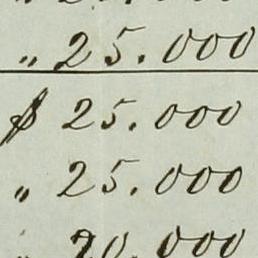 „ 25.000
$ 25.000
„ 25.000
„ 20.000